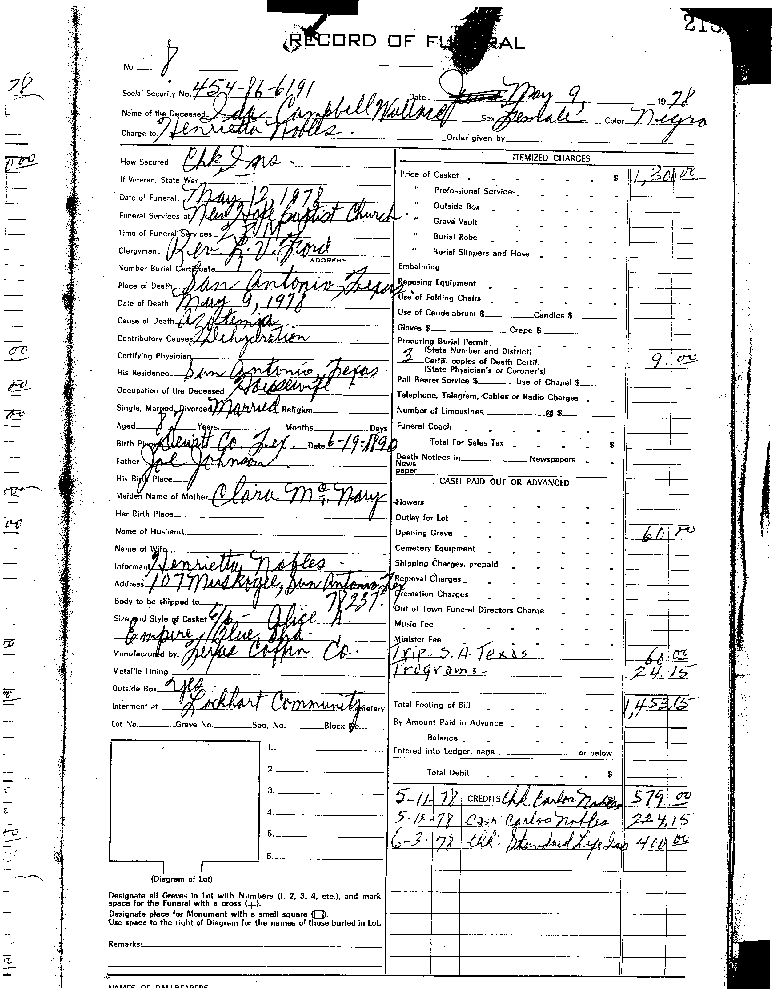 RECORD OF FUNERAL
No. 8
Social Security No. 454-86-6191 Date May 9, 1978
Name of the Deceased Ida Campbell Wallace Sex Female Color Negro
Charge to Henrietta Nobles Order given by
How Secured Chk Ins
If Veteran, State War
Date of Funeral May 12, 1978
Funeral Services at New Hope Baptist Church
Time of Funeral Services 2 PM
Clergyman Rev. L. V. Ford
ADDRESS
Number Burial Certificate
Place of Death San Antonio, Texas
Date of Death May 9, 1978
Cause of Death Azotemia
Contributory Causes Dehydration
Certifying Physician
His Residence San Antonio, Texas
Occupation of the Deceased Housewife
Single, Married, Divorced Married Religion
Aged 87 Years Months Days
Birth Place Dewitt Co. Tex Date 6-19-1890
Father Joe Johnson
His Birth Place
Maiden Name of Mother Clara McNary
Her Birth Place
Name of Husband
Name of Wife
Informant Henrietta Nobles
Address 107 Muskogee, San Antonio, Tex
78237
Body to be shipped to
Size and Style of Casket 6/6 - Alice A.
Empire, Blue,
Manufactured by Texas Coffin Co.
Metallic Lining
Outside Box Yes
Interment at Lockhart Community Cemetery
Lot No. Grave No. Sec. No. Block No.
1.
2.
3.
4.
5.
6.
(Diagram of Lot)
Designate all Graves in Lot with Numbers (1, 2, 3, 4, etc.), and mark
space for the Funeral with a cross (+).
Designate place for Monument with a small square (□).
Use space to the right of Diagram for the names of those buried in Lot.
Remarks:
NAMES OF PALLBEARERS
ITEMIZED CHARGES
Price of Casket $ 1,300 00
" Professional Service
" Outside Box
" Grave Vault
" Burial Robe
" Burial Slippers and Hose
Embalming
Reposing Equipment
Use of Folding Chairs
Use of Candelabrum $ Candles $
Gloves $ Crepe $
Procuring Burial Permit
(State Number and District)
3 Certif. copies of Death Certif. 9 00
(State Physician's or Coroner's)
Pall Bearer Service $ Use of Chapel $
Telephone, Telegram, Cables or Radio Charges
Number of Limousines @ $
Funeral Coach
Total For Sales Tax $
Death Notices in Newspapers
News
paper
CASH PAID OUT OR ADVANCED
Flowers
Outlay for Lot
Opening Grave 60 00
Cemetery Equipment
Shipping Charges, prepaid
Removal Charges
Cremation Charges
Out of Town Funeral Directors Charge
Music Fee
Minister Fee
Trip S.A. Texas 60 00
Programs 24.15
Total Footing of Bill 1,453.15
By Amount Paid in Advance
Balance
Entered into Ledger, page or below
Total Debit $
5-11-78 CREDITS Chk Carlos Nobles 579 00
5-15-78 Cash Carlos Nobles 224.15
6-3-78 Chk. Standard Life Ins 410 00